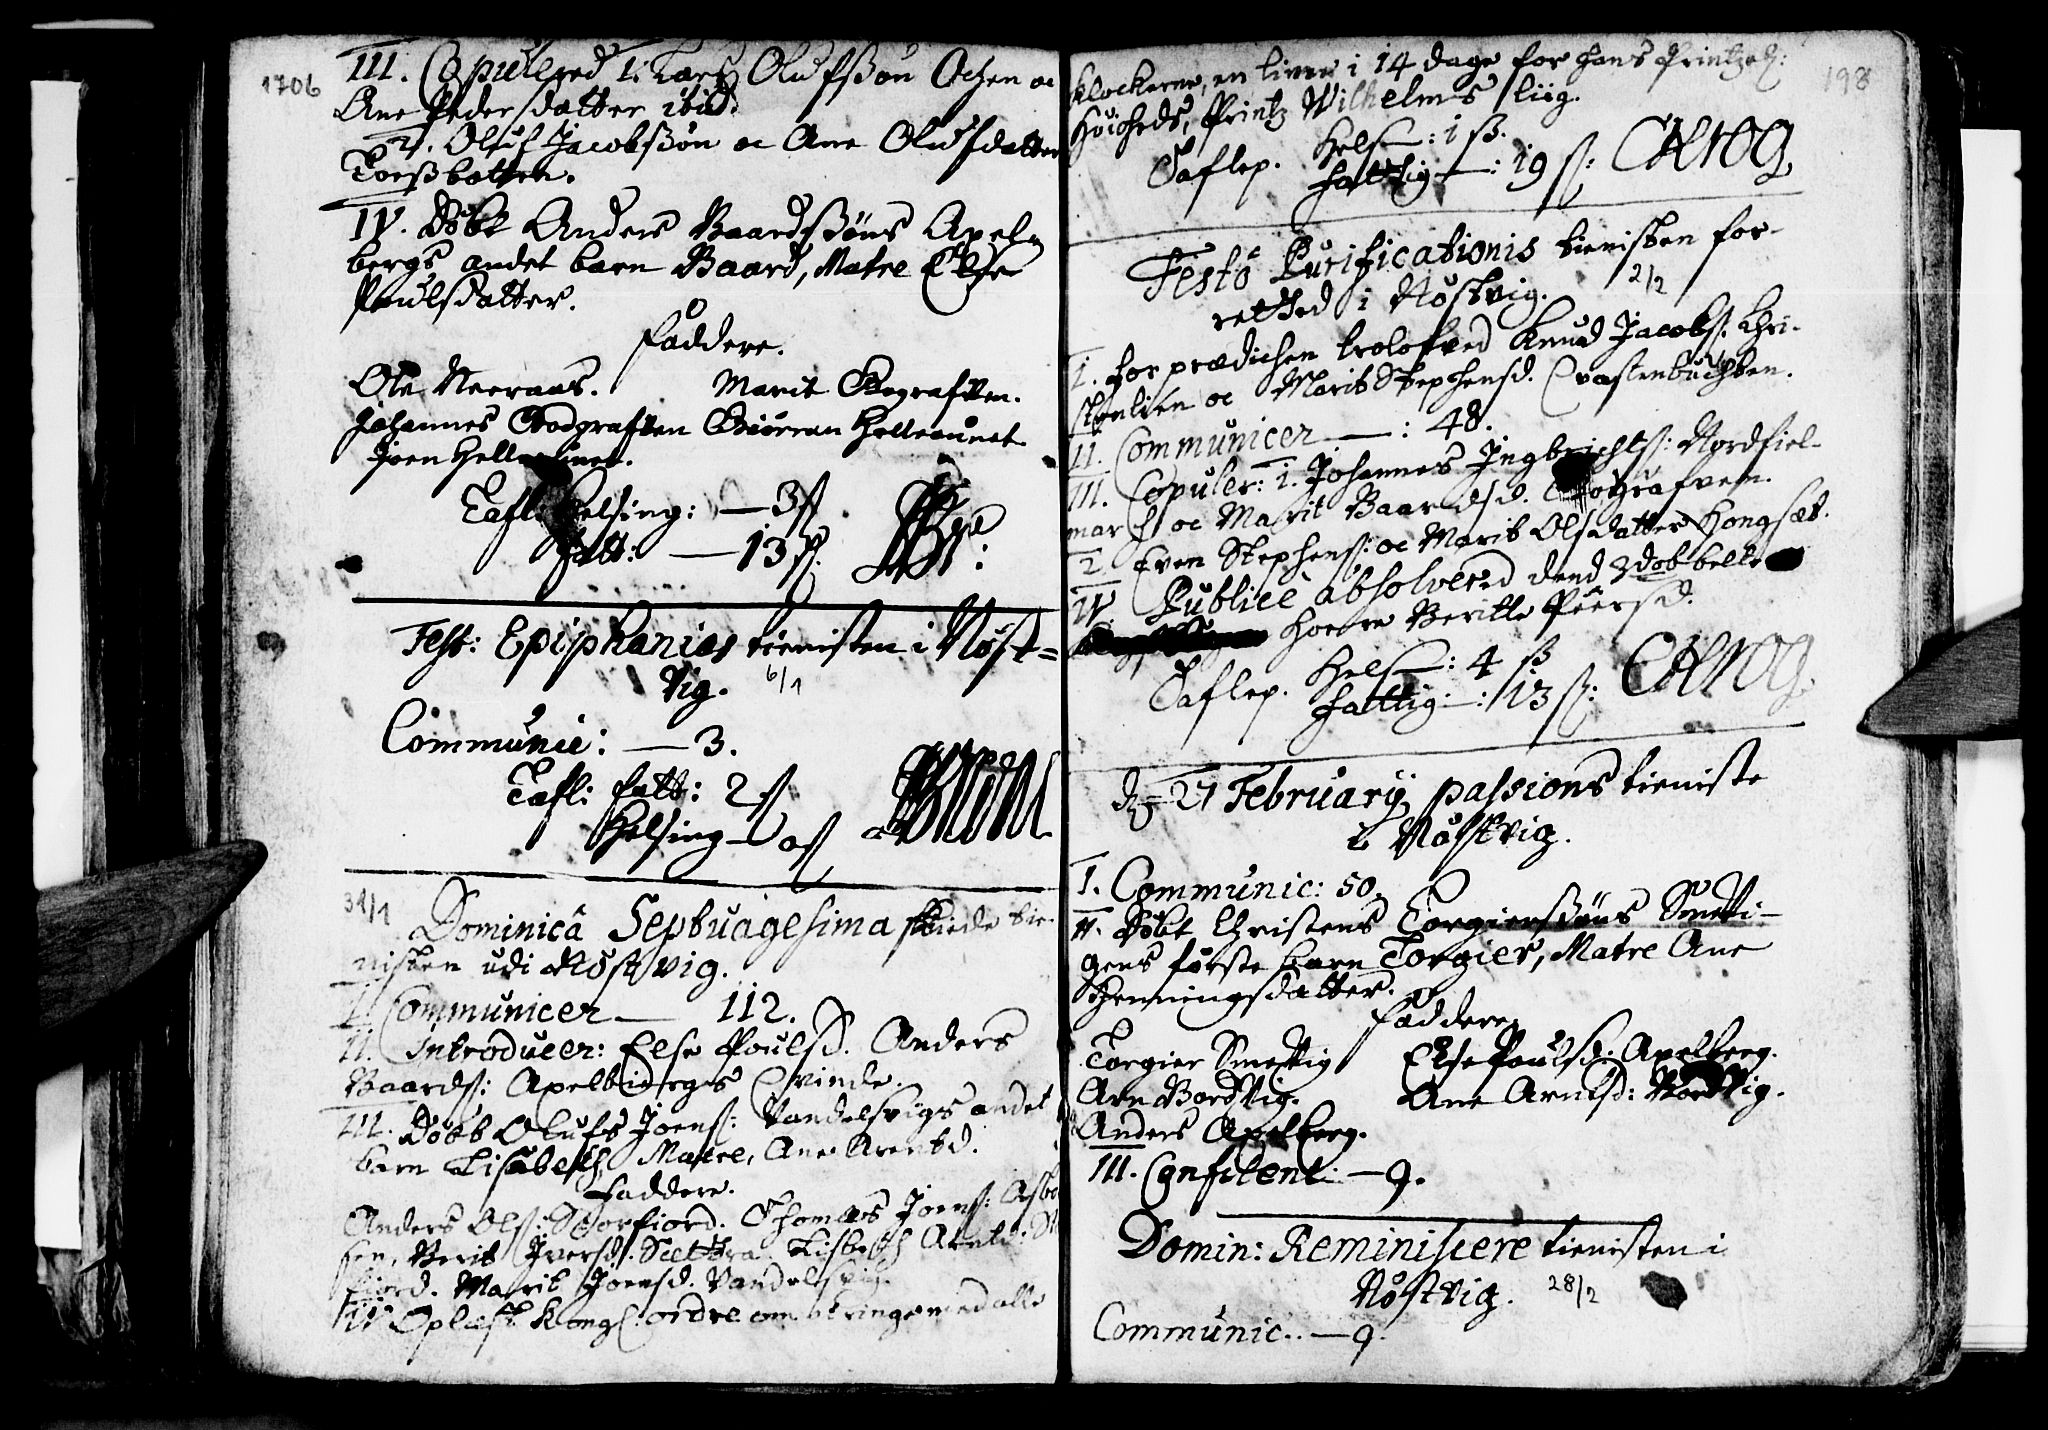 1706
III. Copulered 1. Lars Olufsßøn Ochen oc
Ane Pedersdatter ibid.
2. Oluf Jacobsßøn oc Ane Olufsdatter
Torßbotten.
IV. Døbt Anders Baardsßøns Apel-
bergs andet barn Baard, Matre Else
Poulsdatter.
Faddere.
Ole Neeraas. Marit Skografven.
Johannes Skografven Giörran Helleaunet
Joen Helleaunet.
Tafl: Helsing: — 3 ß
Fatt: — 13 ß.
Fest: Epiphanias tienisten i Nöst=
vig. 6/1
Communic: — 3.
Tafl: Fatt: 2 ß
Helsing — 0 ß
31/1
Dominicâ Septuagesima skiede tie-
nisten udi Nöstvig.
I. Communicer — 112.
II. Introducer: Else Poulsd. Anders
Baards: Apelbiergs Qvinde.
III. Döbt Olufs Joens: Vandelsvigs andet
barn Lisabeth, Matre, Ane Arentsd.
Faddere.
Anders Ols: Storfiord. Thomas Joens:
Berit Iversd. Lisbeth Arntsd:
Marit Joensd. Vandelsvig.
IV Oplæst Kongl: ordre om at ringe med alle
198
Klockerne, en time i 14 dage for hans Printzel:
Höigheds, Printz Wilhelms liig.
Taflep. Hels—: 1 ß.
Fattig —: 19 ß: CKrog
Festo Purificationis tienisten for-
rettet i Nöstvig. 2/2
I. For prædichen trolofved Knud Jacobs: Chri-
stenlien oc Marit Stephensd. Crastenbuchten.
II. Communicer — : 48.
III. Copuler: 1. Johannes Ingbrichts: Nordfiel-
march oc Marit Baardsd. Skografven.
2 Even Stephens: oc Marit Olsdatter Hongsæt.
IV. Publicè absolvered dend 3 dobbelte
Hoere Beritte Peersd.
Taflep. Hels—: 4 ß
Fattig —: 13 ß: CKrog.
d. 21 February passions tieniste
i Nöstvig.
I. Communic: 50.
II. Döbt Christens Torgiersßøns Smetti-
gens förste barn Torgier, Matre Ane
Henningsdatter.
Faddere
Torgier Smettig Else Poulsd: Apelberg.
Arn Bordvig. Ane Arntsd: Nordvig.
Anders Apelberg.
III. Confitent: — 9.
Domin: Reminiscere tienisten i
Nöstvig. 28/2
Communic.. — 9.